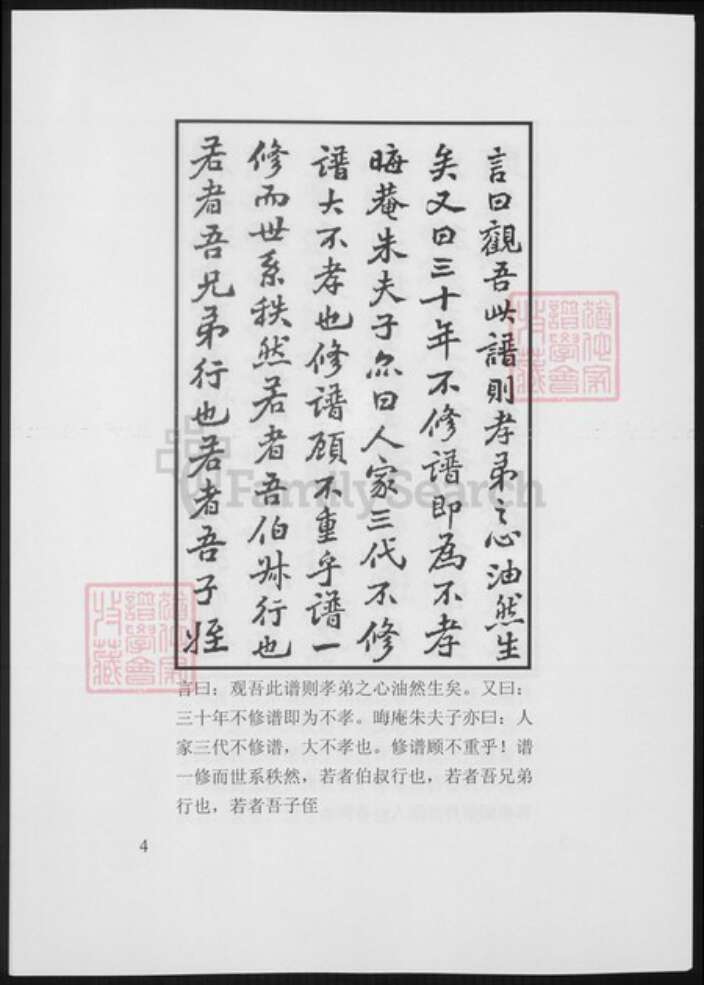 言曰觀吾此譜則孝弟之心油然生
矣又曰三十年不修譜即為不孝
晦菴朱夫子亦曰人家三代不修
譜大不孝也修譜顧不重乎譜一
修而世系秩然若者吾伯叔行也
若者吾兄弟行也若者吾子姪
言曰：观吾此谱则孝弟之心油然生矣。又曰：
三十年不修谱即为不孝。晦庵朱夫子亦曰：人
家三代不修谱，大不孝也。修谱顾不重乎！谱
一修而世系秩然，若者伯叔行也，若者吾兄弟
行也，若者吾子侄
4
FamilySearch